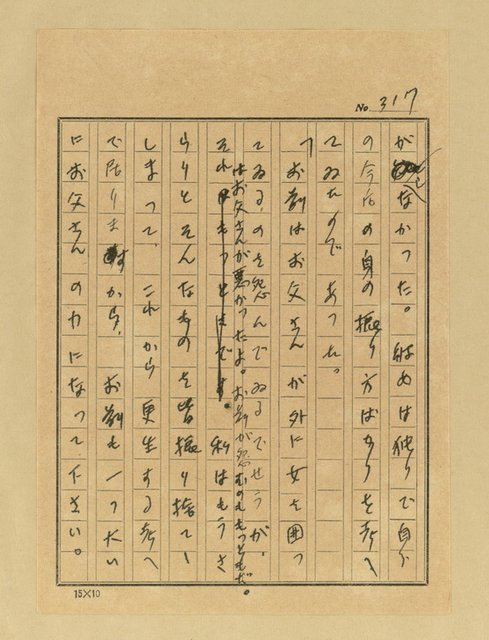 No. 317
がなかった。彼女は独りで自分
の今后の身の振り方ばかりを考へ
てゐたのであった。
「お前はお父さんが外に女を囲っ
てゐるのを怨んでゐるでせうが、
はお父さんが悪かったよ。お前が怨むのももっともだ。
それ 私はもうさ
らりとそんなものを皆振り捨てゝ
しまって、これから更生する考へ
で居りますから、お前も一つ大い
にお父さんの力になって下さい。
15×10